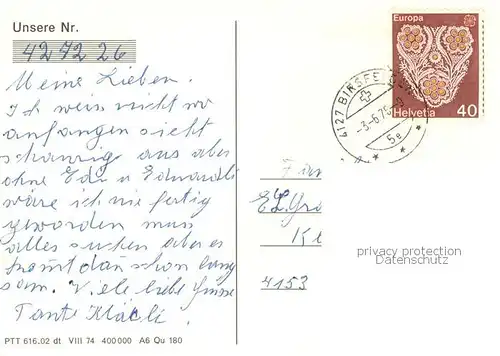 Unsere Nr.
427226
Meine Lieben.
Ich weis nicht wo
anfangen sieht
schaurig aus aber
ohne Edi u Eduardli
wäre ich nie fertig
geworden muss
alles suchen aber es
kommt dan schon lang
sam. Viele liebe Grüsse
Tante Kläčli.
PTT 616.02 dt VIII 74 400 000 A6 Qu 180
Europa
Helvetia 40
4127 BIRSFELDEN
-3.-6.76-
5e
Fam
E. Gro
4153
privacy protection
Datenschutz